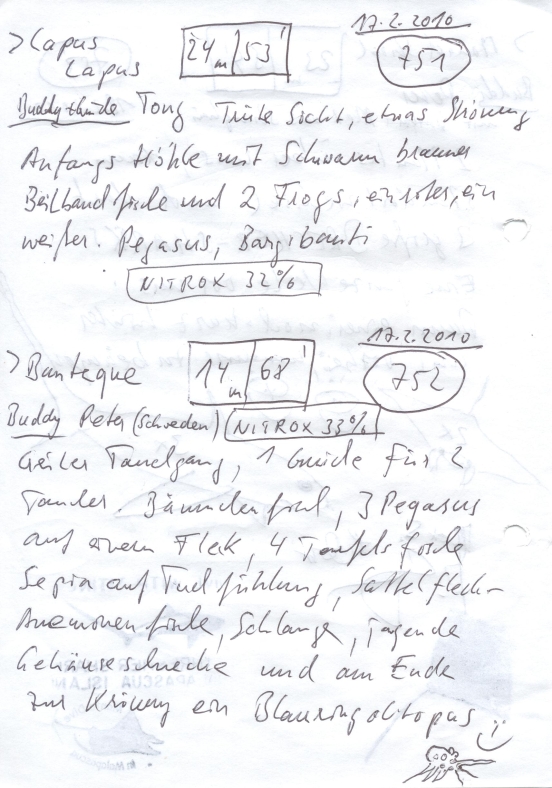 17.2.2010
>Capus Capus
24m 53'
751
Buddy+Guide Tong Trübe Sicht, etwas Strömung
Anfangs Höhle mit Schwarm brauner
Beilbauchfische und 2 Frogs, ein roter, ein
weißer. Pegasus, Bargibanti
NITROX 32%
17.2.2010
>Banteque
14m 68'
752
Buddy Peter (Schweden) NITROX 33%
Geiler Tauchgang, 1 Guide für 2
Taucher. 3 Pegasus
auf einem Fleck, 4 Teufelsfische
Sepia auf Tuchfühlung, Sattelfleck-
Anemonenfische, Schlange, jagende
Gehäuseschnecke und am Ende
zur Krönung ein Blauringoktopus :)